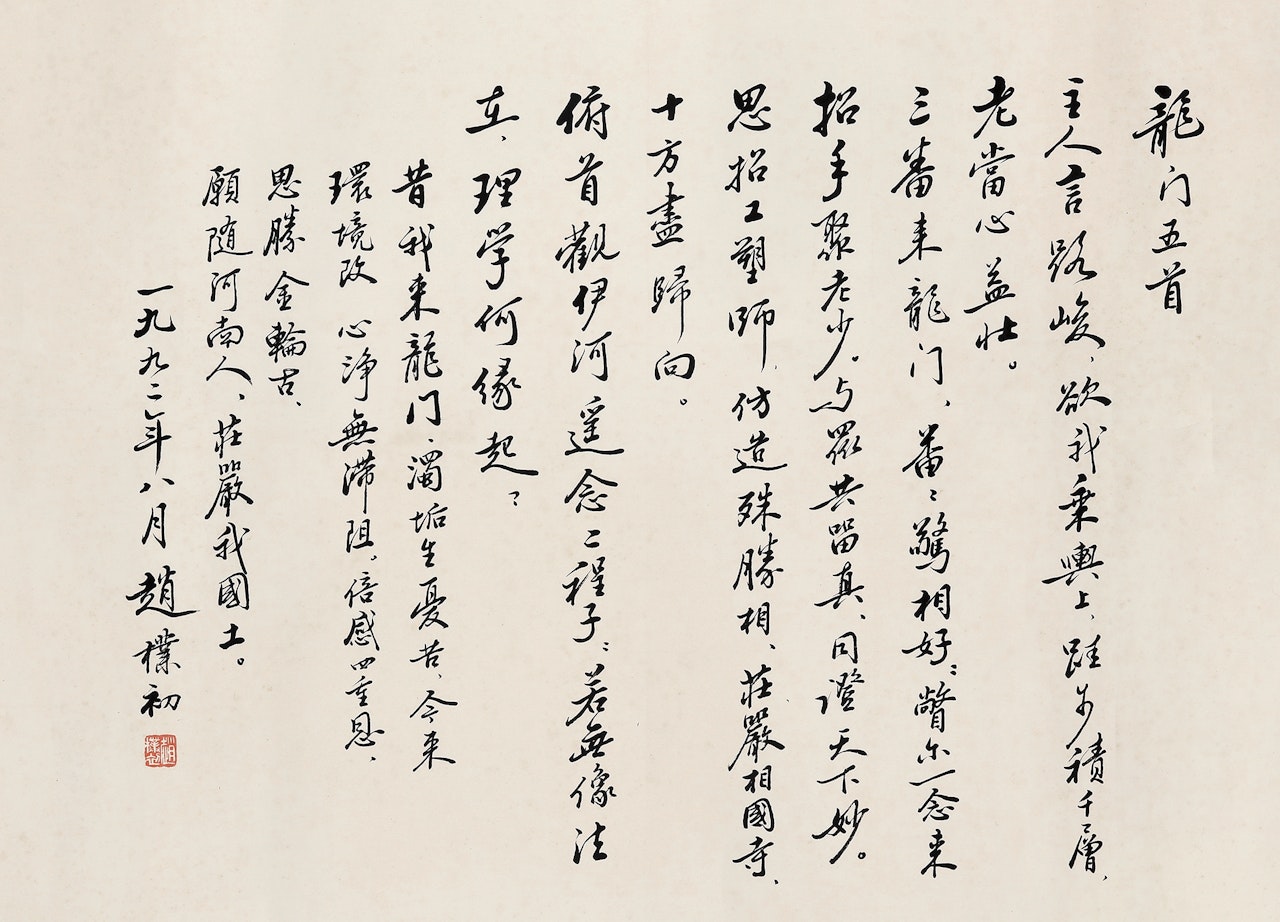 龍门五首
主人言路峻、欲我乘輿上、跬步積千層、
老當心益壯。
三番来龍门、番〻驚相好；瞥尔一念来
招手聚老少。与眾共留真、同證天下妙。
思招工塑師、仿造殊勝相、莊嚴相國寺、
十方盡歸向。
俯首觀伊河遥念二程子；若無像法
在、理学何缘起？
昔我来龍门、濁垢生憂苦、今来
環境改心浄無滞阻。倍感四重恩、
思勝金輪古、
願随河南人、莊嚴我國土。
一九九二年八月趙樸初
趙樸初